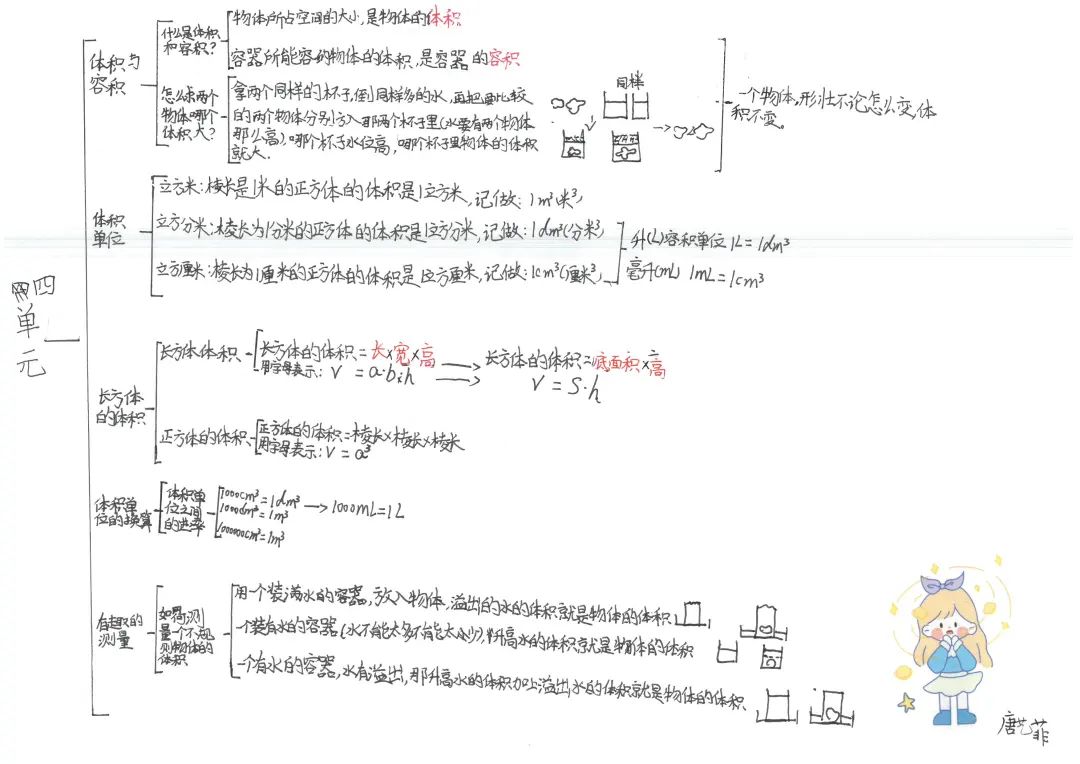 四单元
体积与
容积
什么是体积
和容积？
物体所占空间的大小，是物体的体积
容器所能容纳物体的体积，是容器的容积
怎么求两个
物体哪个
体积大？
拿两个同样的杯子，倒同样多的水，再把要比较
的两个物体分别放入那两个杯子里（水要有两个物体
那么高），哪个杯子水位高，哪个杯子里物体的体积
就大.
同样
一个物体，形壮不论怎么变，体
积不变。
体积
单位
立方米：棱长是1米的正方体的体积是1立方米，记做：1m³(米³)
立方分米：棱长为1分米的正方体的体积是1立方分米，记做：1dm³(分米³)
立方厘米：棱长为1厘米的正方体的体积是1立方厘米，记做：1cm³(厘米³)
升(L)容积单位 1L=1dm³
毫升(mL) 1mL=1cm³
长方体
的体积
长方体体积
长方体的体积=长×宽×高
用字母表示：V=a·b·h
长方体的体积=底面积×高
V=S·h
正方体的体积
正方体的体积=棱长×棱长×棱长
用字母表示：V=a³
体积单
位的换算
体积单
位之间
的进率
1000cm³=1dm³
1000dm³=1m³
1000000cm³=1m³
1000mL=1L
有趣的
测量
如何测
量一个不规
则物体的
体积
用个装满水的容器，放入物体，溢出的水的体积就是物体的体积
一个装有水的容器（水不能太多不能太少）升高水的体积就是物体的体积
一个有水的容器，水有溢出，那升高水的体积加上溢出水的体积就是物体的体积
唐艺菲